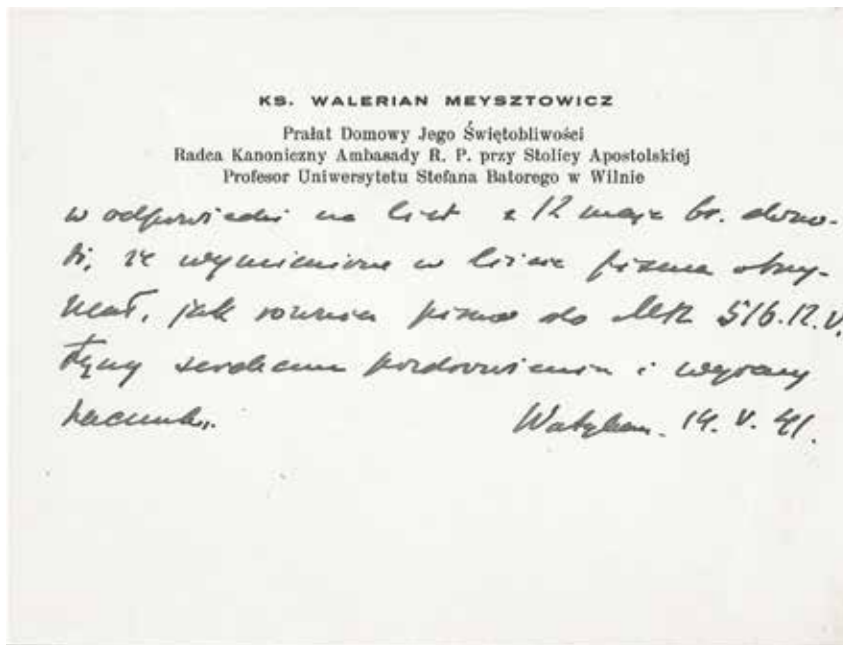 KS. WALERIAN MEYSZTOWICZ
Prałat Domowy Jego Świętobliwości
Radca Kanoniczny Ambasady R. P. przy Stolicy Apostolskiej
Profesor Uniwersytetu Stefana Batorego w Wilnie
w odpowiedzi na list z 12 maja br. dono-
si, że wymienione w liście pisma otrzy-
mał, jak również pismo do 516.12.V.
Łączy serdeczne pozdrowienia i wyrazy
szacunku. Watykan. 14. V. 41.